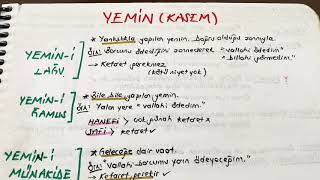 YEMİN (KASEM)
YEMİN-İ LAĞV
* Yanlışlıkla yapılan yemin. Doğru olduğu zannıyla.
Ör: Borcunu ödediğini zannederek "vallahi ödedim."
"billahi görmedim."
↳ Kefaret gerekmez
(kötü niyet yok)
YEMİN-İ GAMUS
* Bile bile yapılan yemin.
Ör: Yalan yere "vallahi ödedim."
HANEFİ → çok günah kefaret x
ŞAFİ → kefaret ✓
YEMİN-İ MÜNAKİDE
* Geleceğe dair vaat.
Ör: "Vallahi borcumu yarın ödeyeceğim."
↳ Kefaret gerekir